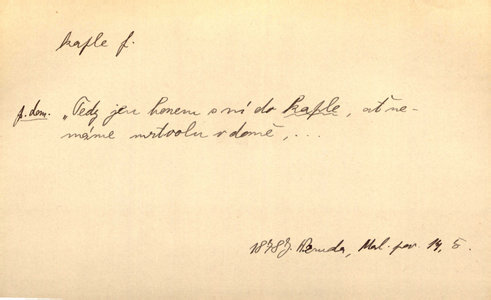 kaple f.
f. dom. „Tedy jen honem s ní do kaple, ať ne-
máme mrtvolu v domě, ...
1878 J. Neruda, Mal. pov. 14, 5.